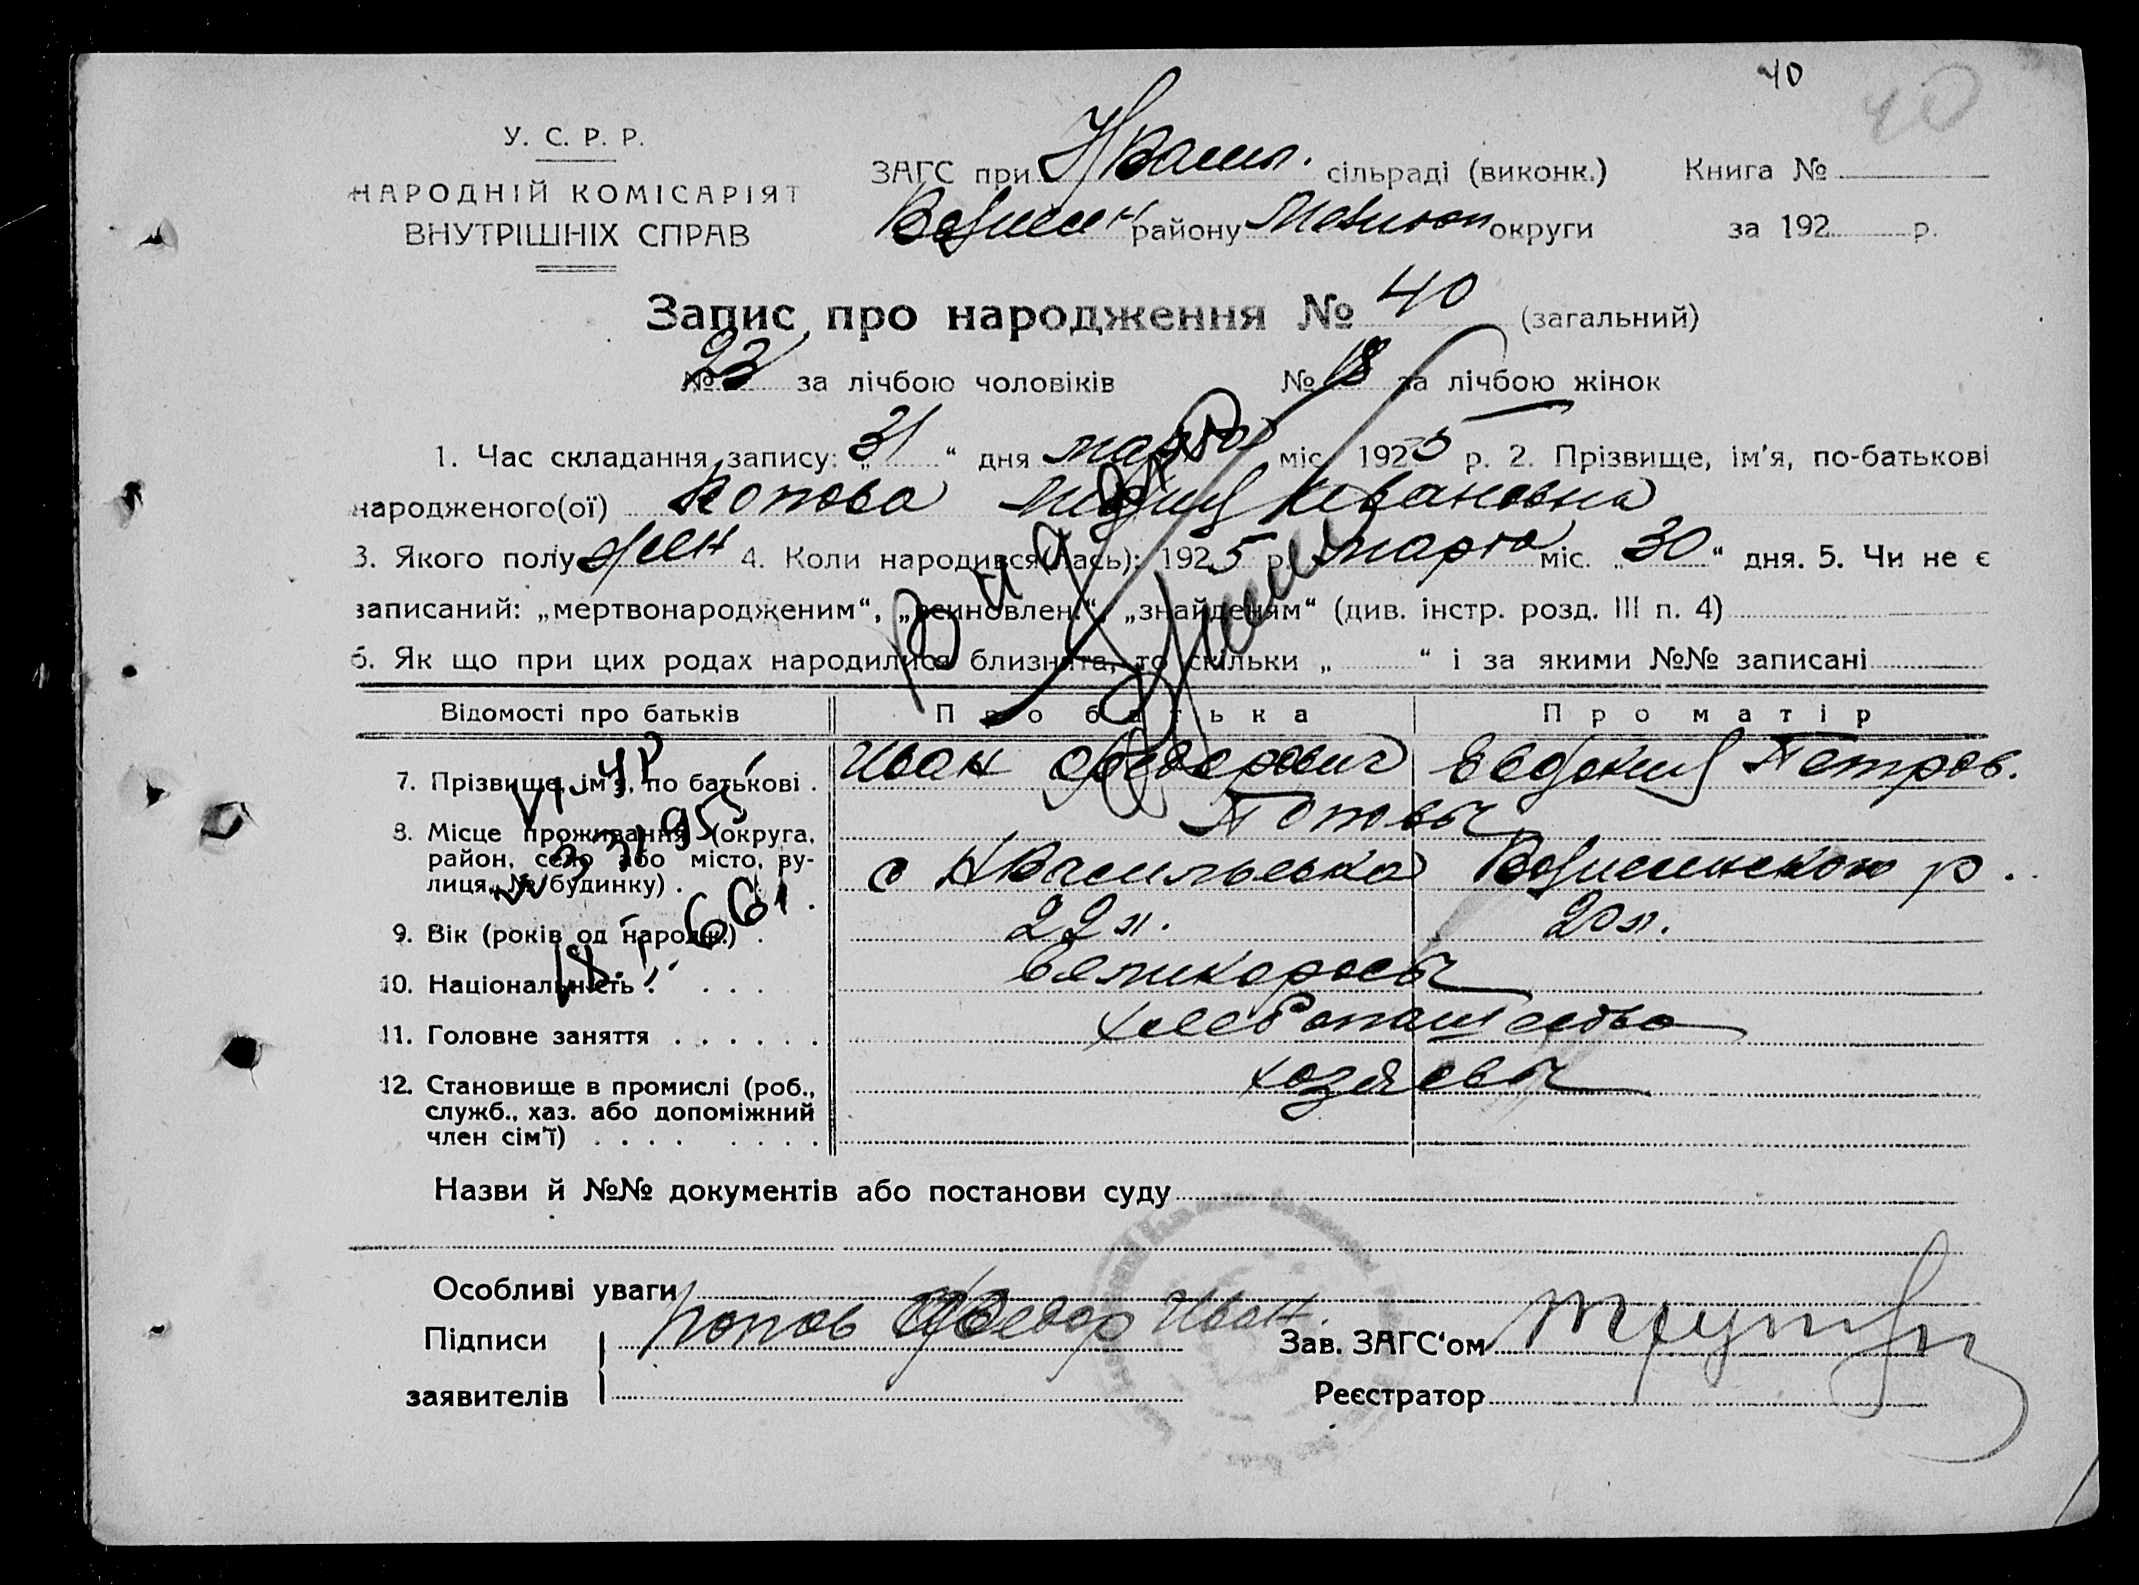 40
40
У. С. Р. Р.
НАРОДНІЙ КОМІСАРІЯТ
ВНУТРІШНІХ СПРАВ
ЗАГС при НВасил. сільраді (виконк.) Книга №
району округи за 192 р.
Запис про народження № 40 (загальний)
№ 23 за лічбою чоловіків № 18 за лічбою жінок
1. Час складання запису: „31“ дня марта міс. 1925 р. 2. Прізвище, ім'я, по-батькові
народженого(ої) Попова Лидия Ивановна
3. Якого полу жен 4. Коли народився(лась): 1925 р. марта міс. „30“ дня. 5. Чи не є
записаний: „мертвонародженим“, „всиновлен.“, „знайденям“ (див. інстр. розд. III п. 4)
6. Як що при цих родах народилися близнята, то скільки „ “ і за якими №№ записані
Відомості про батьків Про батька Про матір
7. Прізвище, ім'я, по батькові . Иван Федорович Евдокия Петров.
Поповы
8. Місце проживання (округа,
район, село або місто, ву-
лиця, № будинку) . с НВасильевка р.
9. Вік (років од народж.) . 22 л. 20 л.
10. Національність . великороссы
11. Головне заняття . . . . . . хлебопашество
12. Становище в промислі (роб.,
служб., хаз. або допоміжний
член сім'ї) . . . . . . . . хозяевы
Назви й №№ документів або постанови суду
Особливі уваги
Підписи Попов Федор Иван. Зав. ЗАГС'ом
заявителів Реєстратор